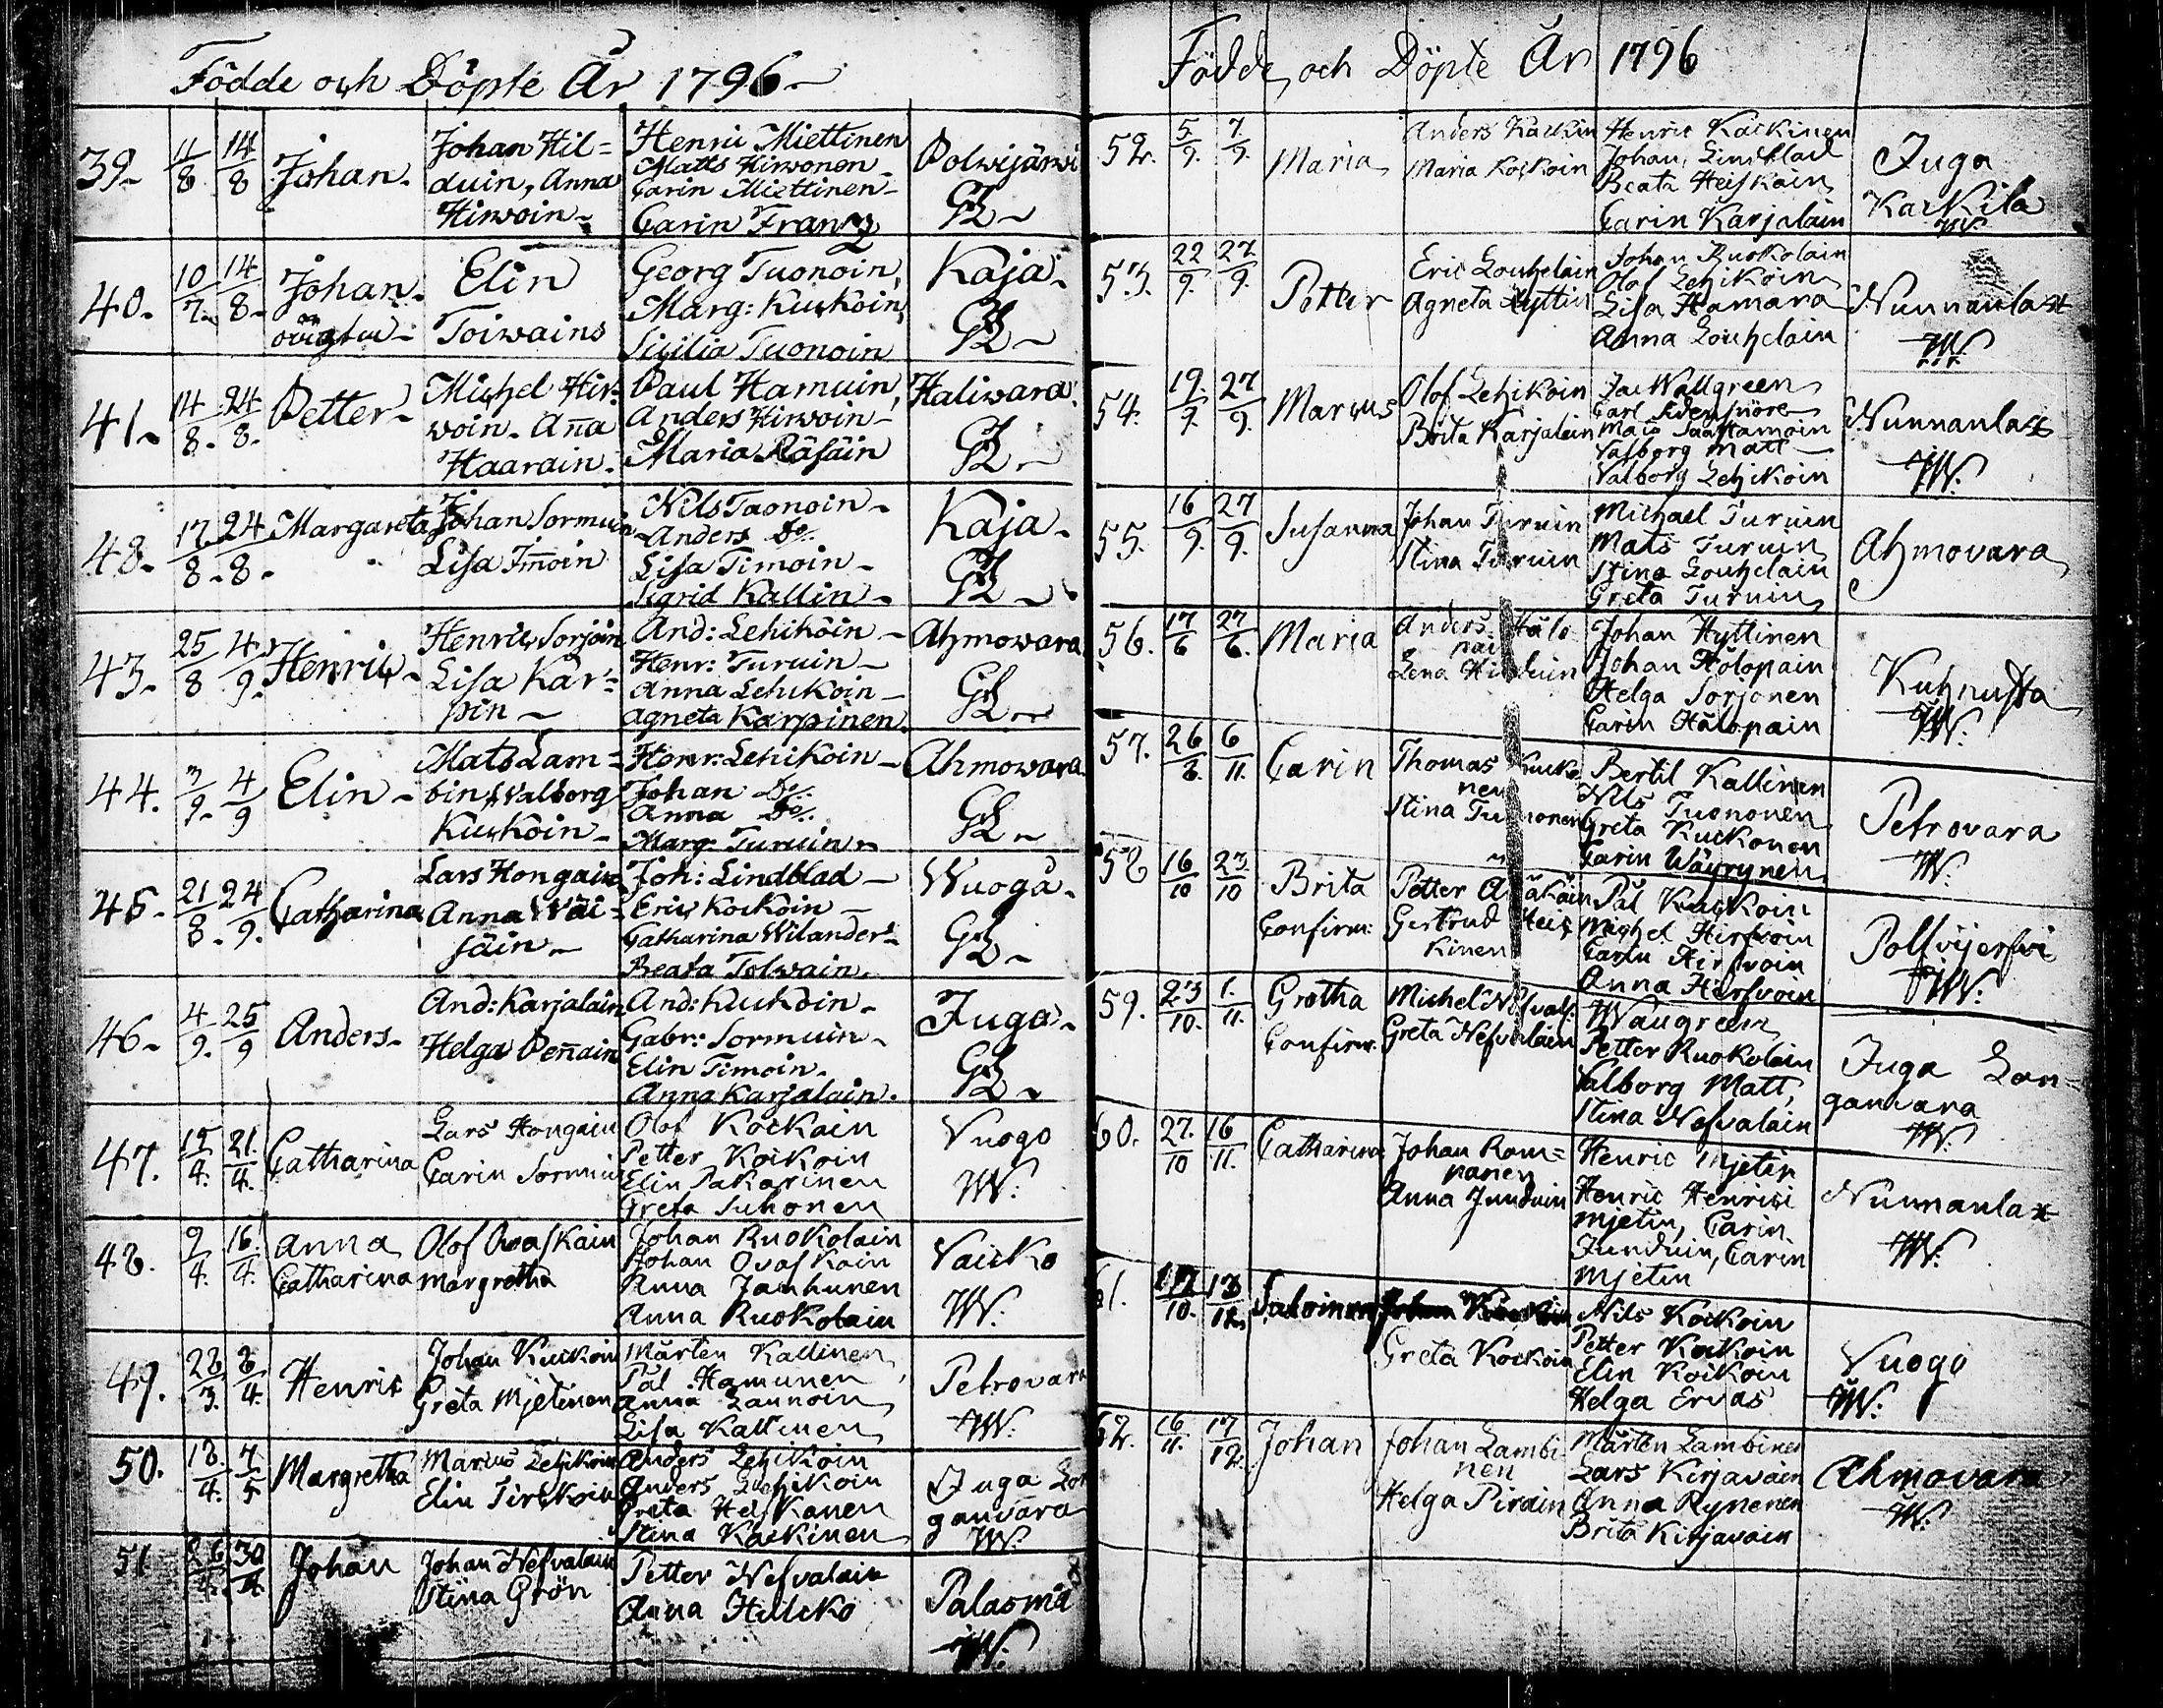 Födde och Döpte År 1796
39. 11/8 14/8 Johan. Johan Hil= Henric Miettinen Polwijärwi
duin, Anna Matts Hirwonen
Hirwoin Carin Miettinen
Carin Frantz
40. 10/7. 14/8. Johan. Elin Georg Tuonoin, Kaja.
Toiwains Marg: Kuckoin,
Sicilia Tuonoin
41. 14/8. 24/8. Petter Michel Hir= Paul Hamuin, Haliwara.
woin. Anna Anders Hirwoin
Haarain. Maria Räsäin
48. 17/8. 24/8. Margareta Johan Sormuin Nils Tuonoin Kaja.
Lisa Timoin Anders Do.
Lisa Timoin
Sigrid Kallin
43. 25/8 4/9. Henric Henric Sorjoin And: Lehikoin Ahmowara
Lisa Kar= Henr: Turuin
pin Anna Lehikoin
Agneta Karpinen
44. 3/9. 4/9 Elin Mats Lam= Henr: Lehikoin Ahmowara
bin, Walborg Johan Do.
Kuckoin Anna Do.
Marg: Turuin
45. 21/8. 24/9. Catharina Lars Hongain Joh: Lindblad Wuogå.
Anna Wäi= Eric Kockoin
säin Catharina Wilander
Beata Tolwain
46. 4/9. 25/9 Anders. And: Karjalain And: Kuckoin Juga.
Helga Pennain Gabr: Sormuin
Elin Timoin.
Anna Karjalain.
47. 15/4. 21/4. Catharina Lars Hongain Olof Kockoin Vuogo
Carin Sormuin Petter Kockoin W:
Elin Pakarinen
Greta Suhonen
48. 9/4. 16/4. Anna Olof Ovaskain Johan Ruokolain Vaicko
Catharina Margretha Johan Ovaskain W:
Anna Janhunen
Anna Ruokolain
49. 28/3. 8/4. Henric Johan Kuckoin Mårten Kallinen Petrovara
Greta Mjetinen Pål Hamunen W:
Anna Launoin
Lisa Kallinen
50. 18/4. 7/5 Margretha Marcus Lehikoin Anders Lehikoin Juga Lon
Elin Tirskoin Anders Lehikoin ganvara
Greta Heiskanen W:
Stina Kackinen
51 26/4. 30/4. Johan Johan Nefvalain Petter Nefvalain Palasmä
Stina Grön Anna Hulcko W:
Födde och Döpte År 1796
52. 5/9. 7/9. Maria Anders Kackin Henric Kackinen Juga
Maria Kockoin Johan Lindblad Kackila
Beata Heiskain W:
Carin Karjalain
53. 22/9. 27/9. Petter Eric Louhelain Johan Ruokolain Nunnanlax
Agneta Hyttin Olof Lehikoin W:
Lisa Hamara
Anna Louhelain
54. 19/9. 27/9. Marcus Olof Lehikoin Jac Wallgreen Nunnanlax
Brita Karjalain Carl W:
Mats Saastamoin
Valborg Matt
Valborg Lehikoin
55. 16/9. 27/9. Susanna Johan Turuin Michael Turuin Ahmovara
Stina Turuin Mats Turuin
Stina Louhelain
Greta Turuin
56. 17/6 27/6. Maria Anders Hålo Johan Hyttinen Kuhnusta
pai Johan Hålopain W:
Lena Hilduin Helga Sorjonen
Carin Hålopain
57. 26/8. 6/11. Carin Thomas Kucko Bertil Kallinen Petrovara
nen Nils Tuononen W:
Stina Tuononen Greta Kuckonen
Carin Wäyrynen
58 16/10 23/10 Brita Petter Pål Kuckoin Polfvijerfvi
Confirm: Gertrud Heis Michel Hirfvoin W:
kinen Carin Hirfvoin
Anna Hirfvoin
59. 23/10. 1./11. Gretha Michel Nefval: Wallgreen Juga Lon=
Confirm: Greta Nefvalain Petter Ruokolain ganvara
Valborg Matt, W:
Stina Nefvalain
60. 27./10 16/11. Catharina Johan Rom= Henric Mjetin Nunnanlax
panen Henric Henrici W:
Anna Junduin Mjetin, Carin
Junduin, Carin
Mjetin
61. 17/10. 13/12. Salomon Johan Kockoin Nils Kockoin Vuogo
Greta Kockoin Petter Kockoin W:
Elin Kockoin
Helga Ervas
62. 16/11. 17/12. Johan Johan Lambi Mårten Lambinen Ahmovara
nen Lars Kirjavain W:
Helga Pirain Anna Rynenen
Brita Kirjavain